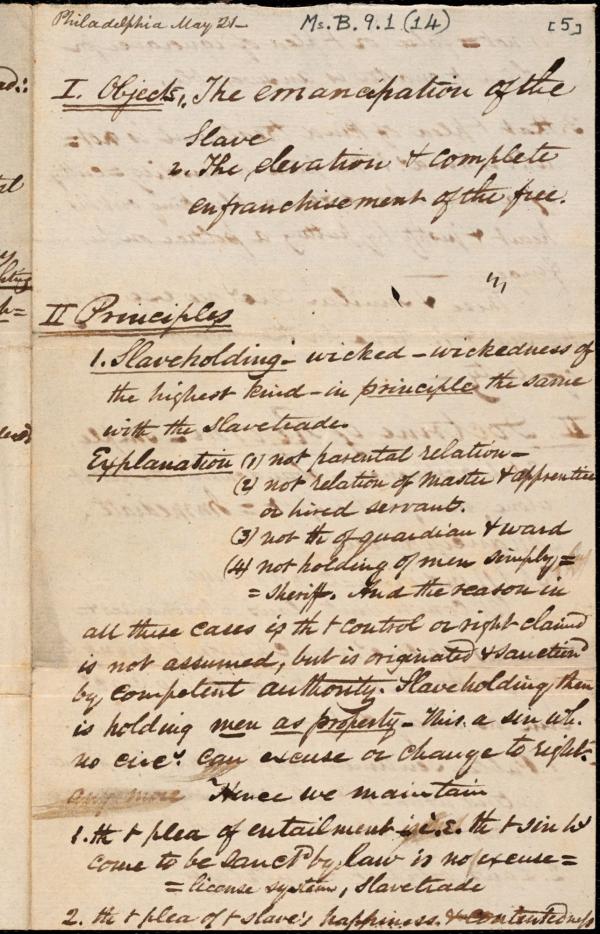 Philadelphia May 21-
Ms. B. 9.1 (14)
[5]
I. Objects, 1. The emancipation of the
Slave
2. The elevation & complete
enfranchisement of the free.
II Principles
1. Slaveholding - wicked - wickedness of
the highest kind - in principle the same
with the slavetrade.
Explanation (1) not parental relation -
(2) not relation of master & apprentice
or hired servant.
(3) not th of guardian & ward
(4) not holding of men simply =
= sheriff. And the reason in
all these cases is th t control or right claimed
is not assumed, but is originated & sanctiond
by competent authority. Slaveholding then
is holding men as property - This a sin wh.
no circs. can excuse or change to right.
any more Hence we maintain
1. th t plea of entailment i.e. th t sin hs
come to be sanctd by law is no excuse =
= license system, slavetrade
2. th t plea of t slave's happiness & contentedness